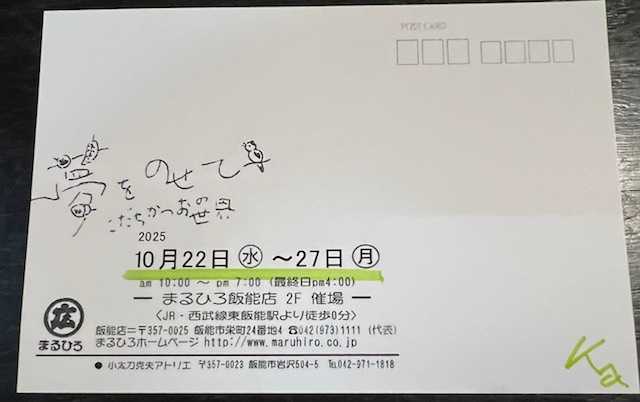 POST CARD
夢を のせて
こだちかつおの世界
2025
10月22日㊌ ～27日㊊
am 10:00 ～ pm 7:00 (最終日pm4:00)
― まるひろ飯能店 2F 催場 ―
〈JR・西武線東飯能駅より徒歩0分〉
広
まるひろ
飯能店＝〒357-0025 飯能市栄町24番地4 ☎042(973)1111 (代表)
まるひろホームページ http://www.maruhiro.co.jp
● 小太刀克夫アトリエ 〒357-0023 飯能市岩沢504-5 TEL.042-971-1818
Ka